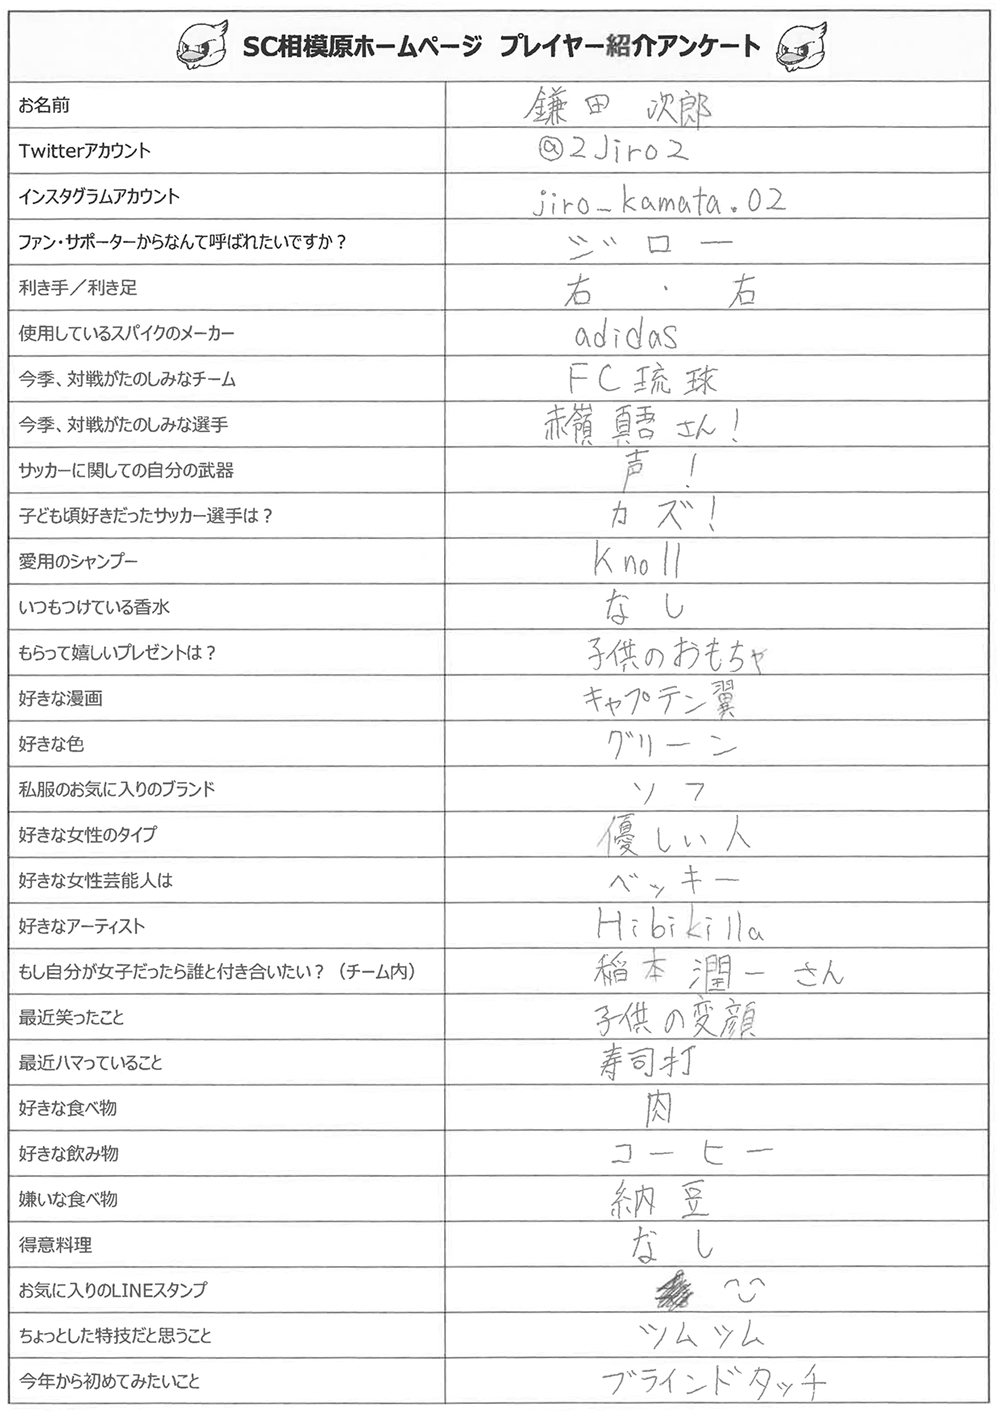 SC相模原ホームページ プレイヤー紹介アンケート
お名前 鎌田 次郎
Twitterアカウント @2Jiro2
インスタグラムアカウント jiro_kamata.02
ファン・サポーターからなんて呼ばれたいですか？ ジロー
利き手／利き足 右 ・ 右
使用しているスパイクのメーカー adidas
今季、対戦がたのしみなチーム FC琉球
今季、対戦がたのしみな選手 赤嶺 真吾さん！
サッカーに関しての自分の武器 声！
子ども頃好きだったサッカー選手は？ カズ！
愛用のシャンプー Knoll
いつもつけている香水 なし
もらって嬉しいプレゼントは？ 子供のおもちゃ
好きな漫画 キャプテン翼
好きな色 グリーン
私服のお気に入りのブランド ソフ
好きな女性のタイプ 優しい人
好きな女性芸能人は ベッキー
好きなアーティスト Hibikilla
もし自分が女子だったら誰と付き合いたい？（チーム内） 稲本 潤一 さん
最近笑ったこと 子供の変顔
最近ハマっていること 寿司打
好きな食べ物 肉
好きな飲み物 コーヒー
嫌いな食べ物 納豆
得意料理 なし
お気に入りのLINEスタンプ
ちょっとした特技だと思うこと ツムツム
今年から初めてみたいこと ブラインドタッチ